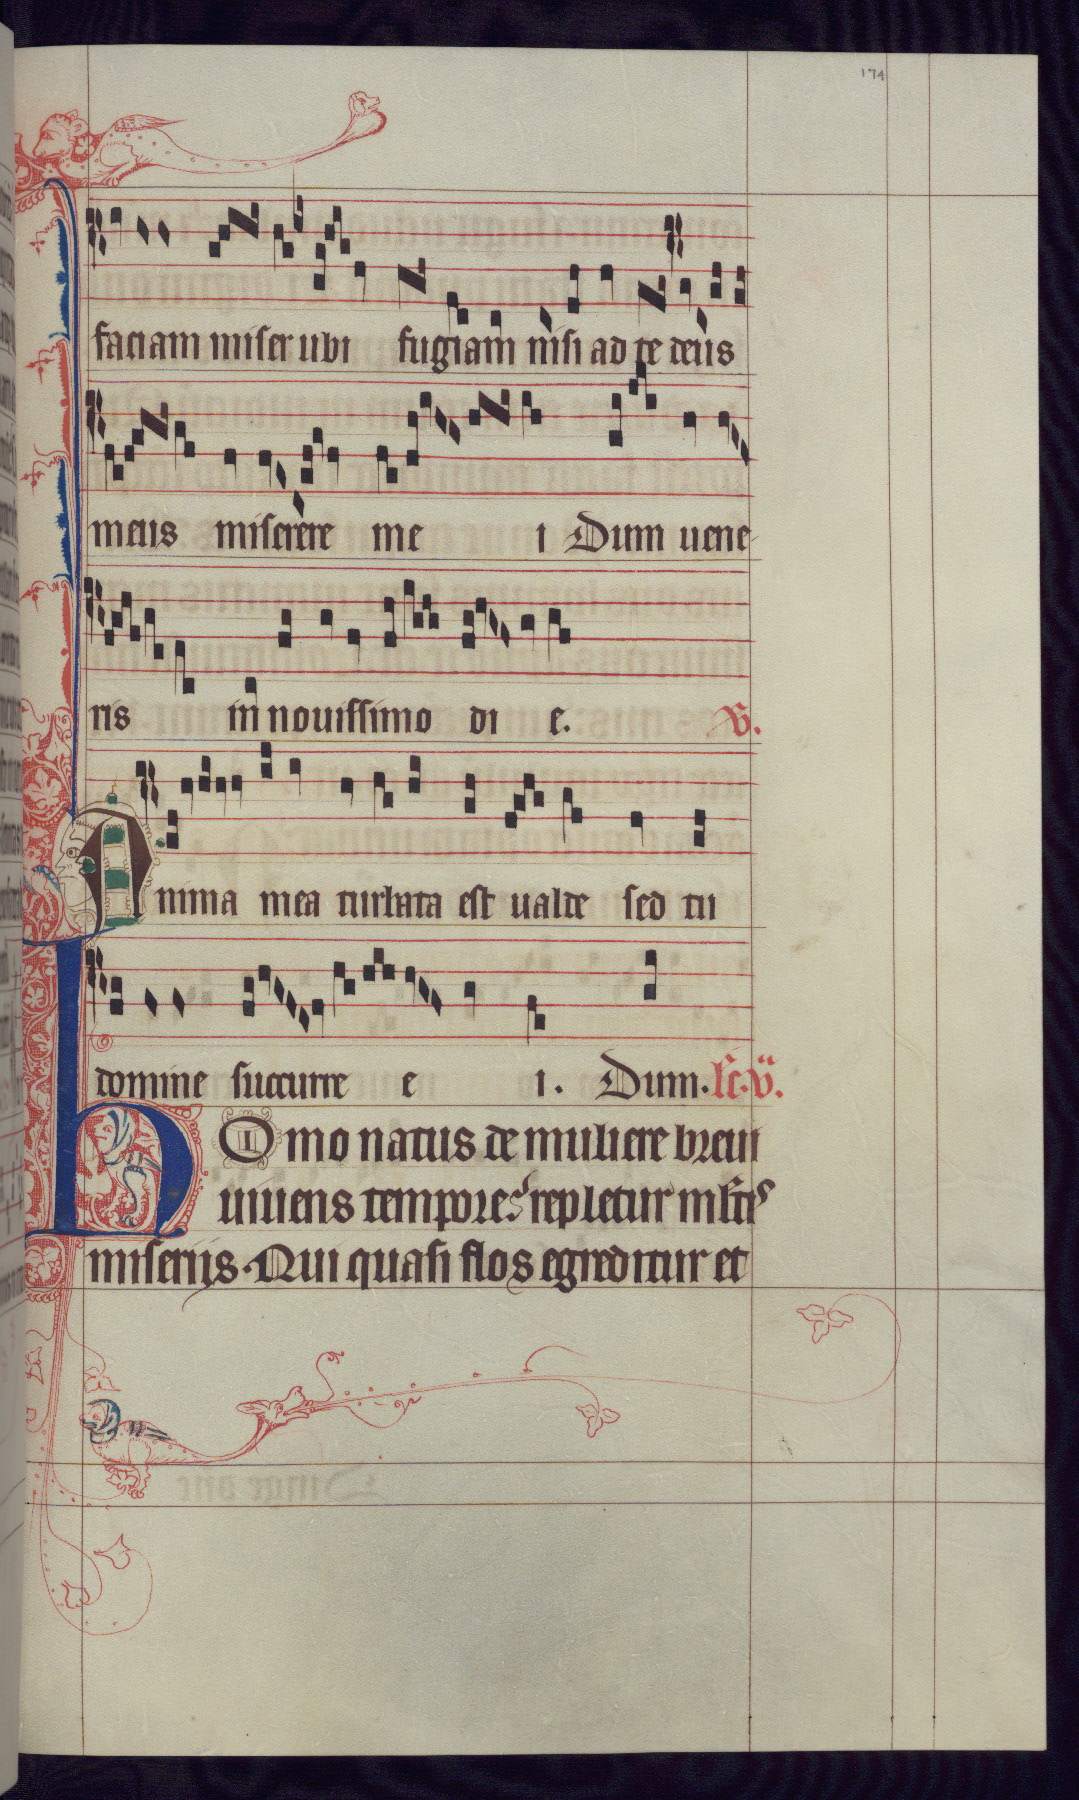 174
faciam miser ubi fugiam nisi ad te deus
meus miserere me i Dum uene-
ris in nouissimo di e. V.
Anima mea turbata est ualde sed tu
domine succurre e i. Dum. lc. v.
HOmo natus de muliere breui
uiuens tempore: repletur mltis
miserijs. Qui quasi flos egreditur et